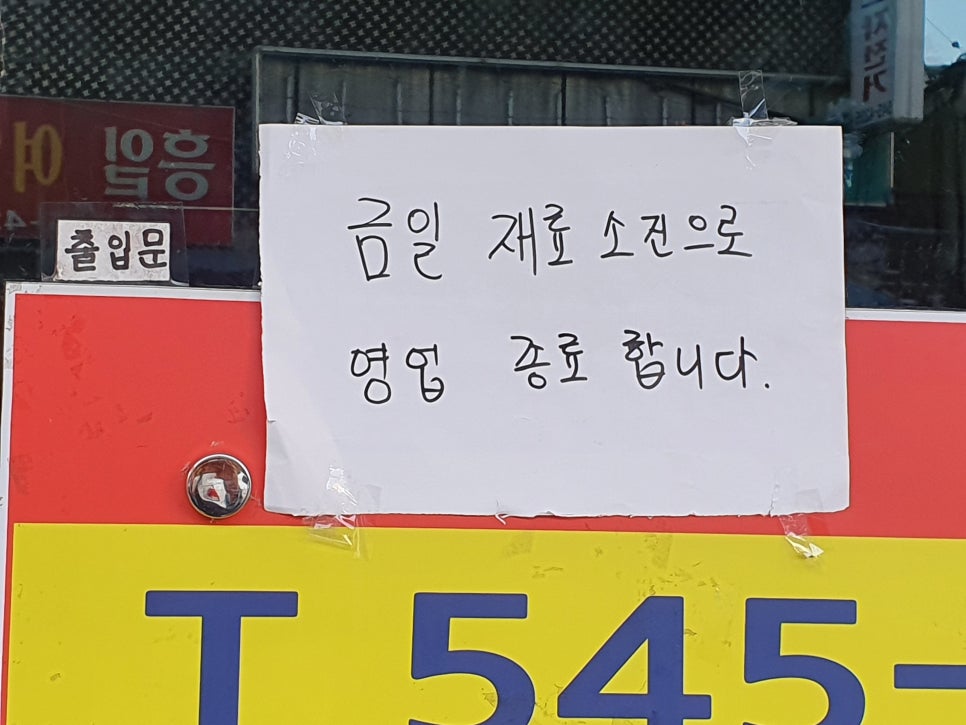 금일 재료 소진으로
영업 종료 합니다.
출입문
흥일 여
T 545-